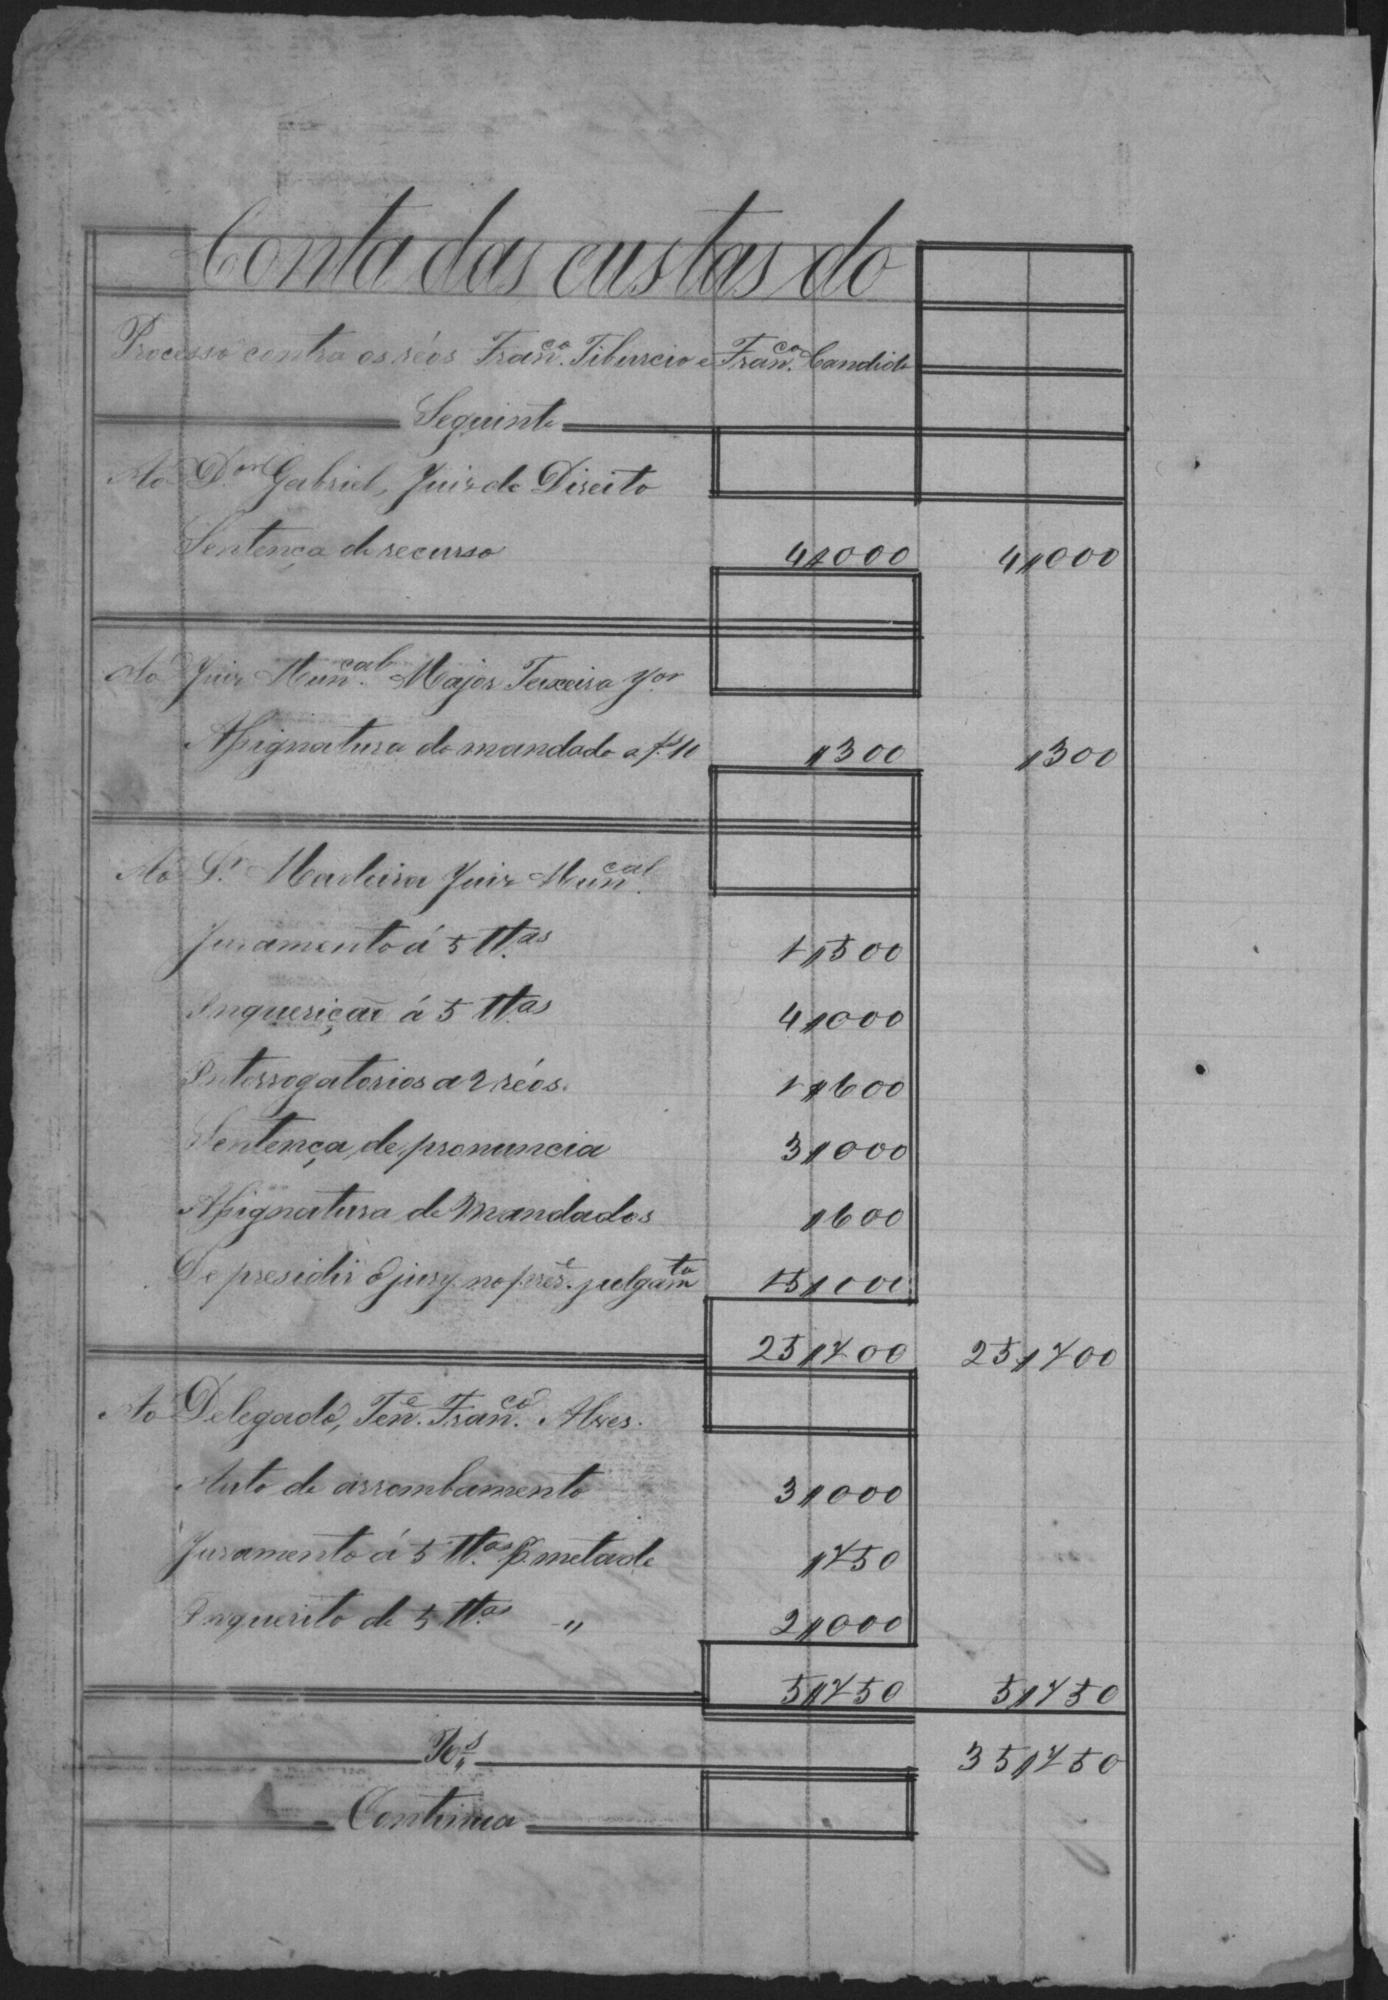 Conta das custas do
Processo contra os réos Fran.co Tiburcio e Fran.co Candido
Seguinte
Ao D.or Gabriel, Juiz de Direito
Sentença de recurso 4$000 4$000
Ao Juiz Mun.cal Major Teixeira Jor
Assignatura do mandado a f. 10 $300 $300
Ao Sr. Madeira Juiz Mun.cal
Juramento á 5 tt.as 1$500
Inquerição á 5 tt.as 4$000
Interrogatorios a 2 réos. 1$600
Sentença de pronuncia 3$000
Assignatura de Mandados $600
De presidir o jury no pres.e julgam.to 15$000
25$700 25$700
Ao Delegado, Ten.e Fran.co Alves.
Auto de arrombamento 3$000
Juramento á 5 tt.as p. metade $750
Inquerito de 5 tt.as " 2$000
5$750 5$750
R.s 35$750
Continua